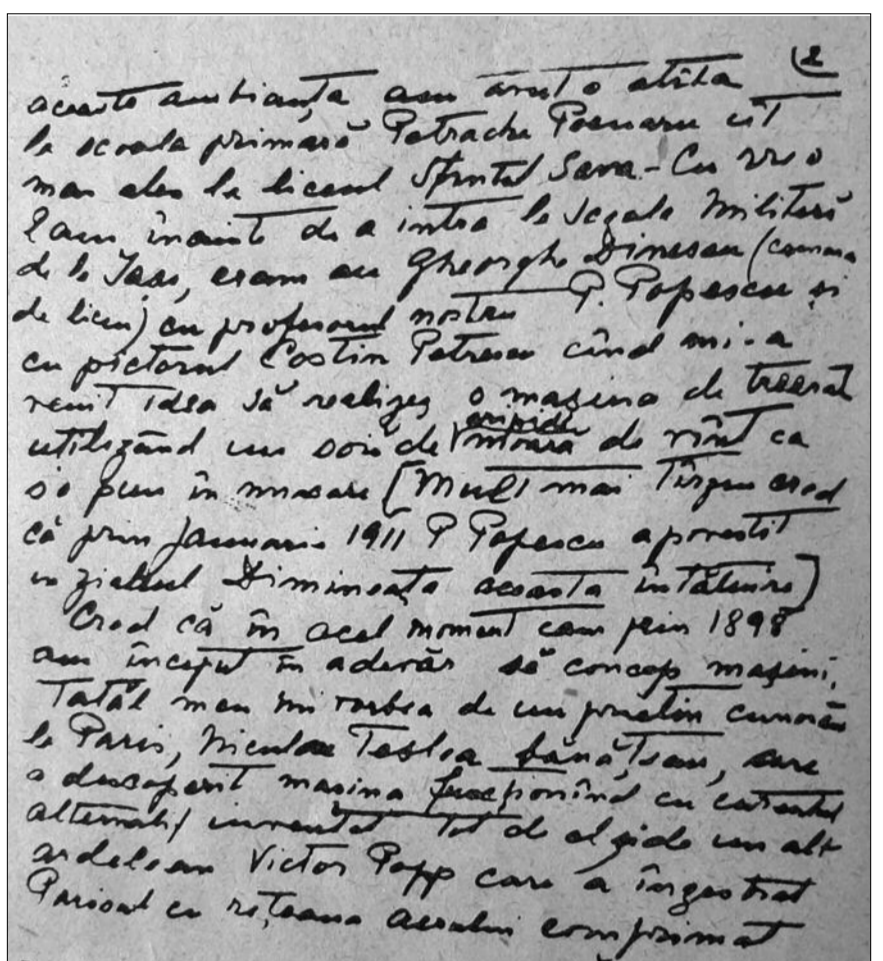 2
aceasta ambianța am avut o atîta
la scoala primară Petrache Poenaru cît
mai ales la liceul Sfîntul Sava - Cu vreo
2 ani înainte de a intra la Scoala Militară
de la Iași, eram cu Gheorghe Dinescu (camarad
de liceu) cu profesorul nostru P. Popescu și
cu pictorul Costin Petrescu cînd mi-a
venit idea să realizez o masina de treerat
utilizând un soiu de moară de vînt ca
s'o pun în miscare [Mult mai tîrziu cred
că prin Januarie 1911 P Popescu a povestit
in ziarul Dimineața aceasta întâlnire]
Cred că în acel moment cam prin 1898
am început în adevăr să concep mașini,
Tatăl meu mi vorbea de un prietin cunoscu
la Paris, Niculae Teslea bănățean, care
a descoperit masina funcționînd cu curentul
alternativ inventat tot de el și de un alt
ardelean Victor Popp care a înzestrat
Parisul cu rețeaua aerului comprimat